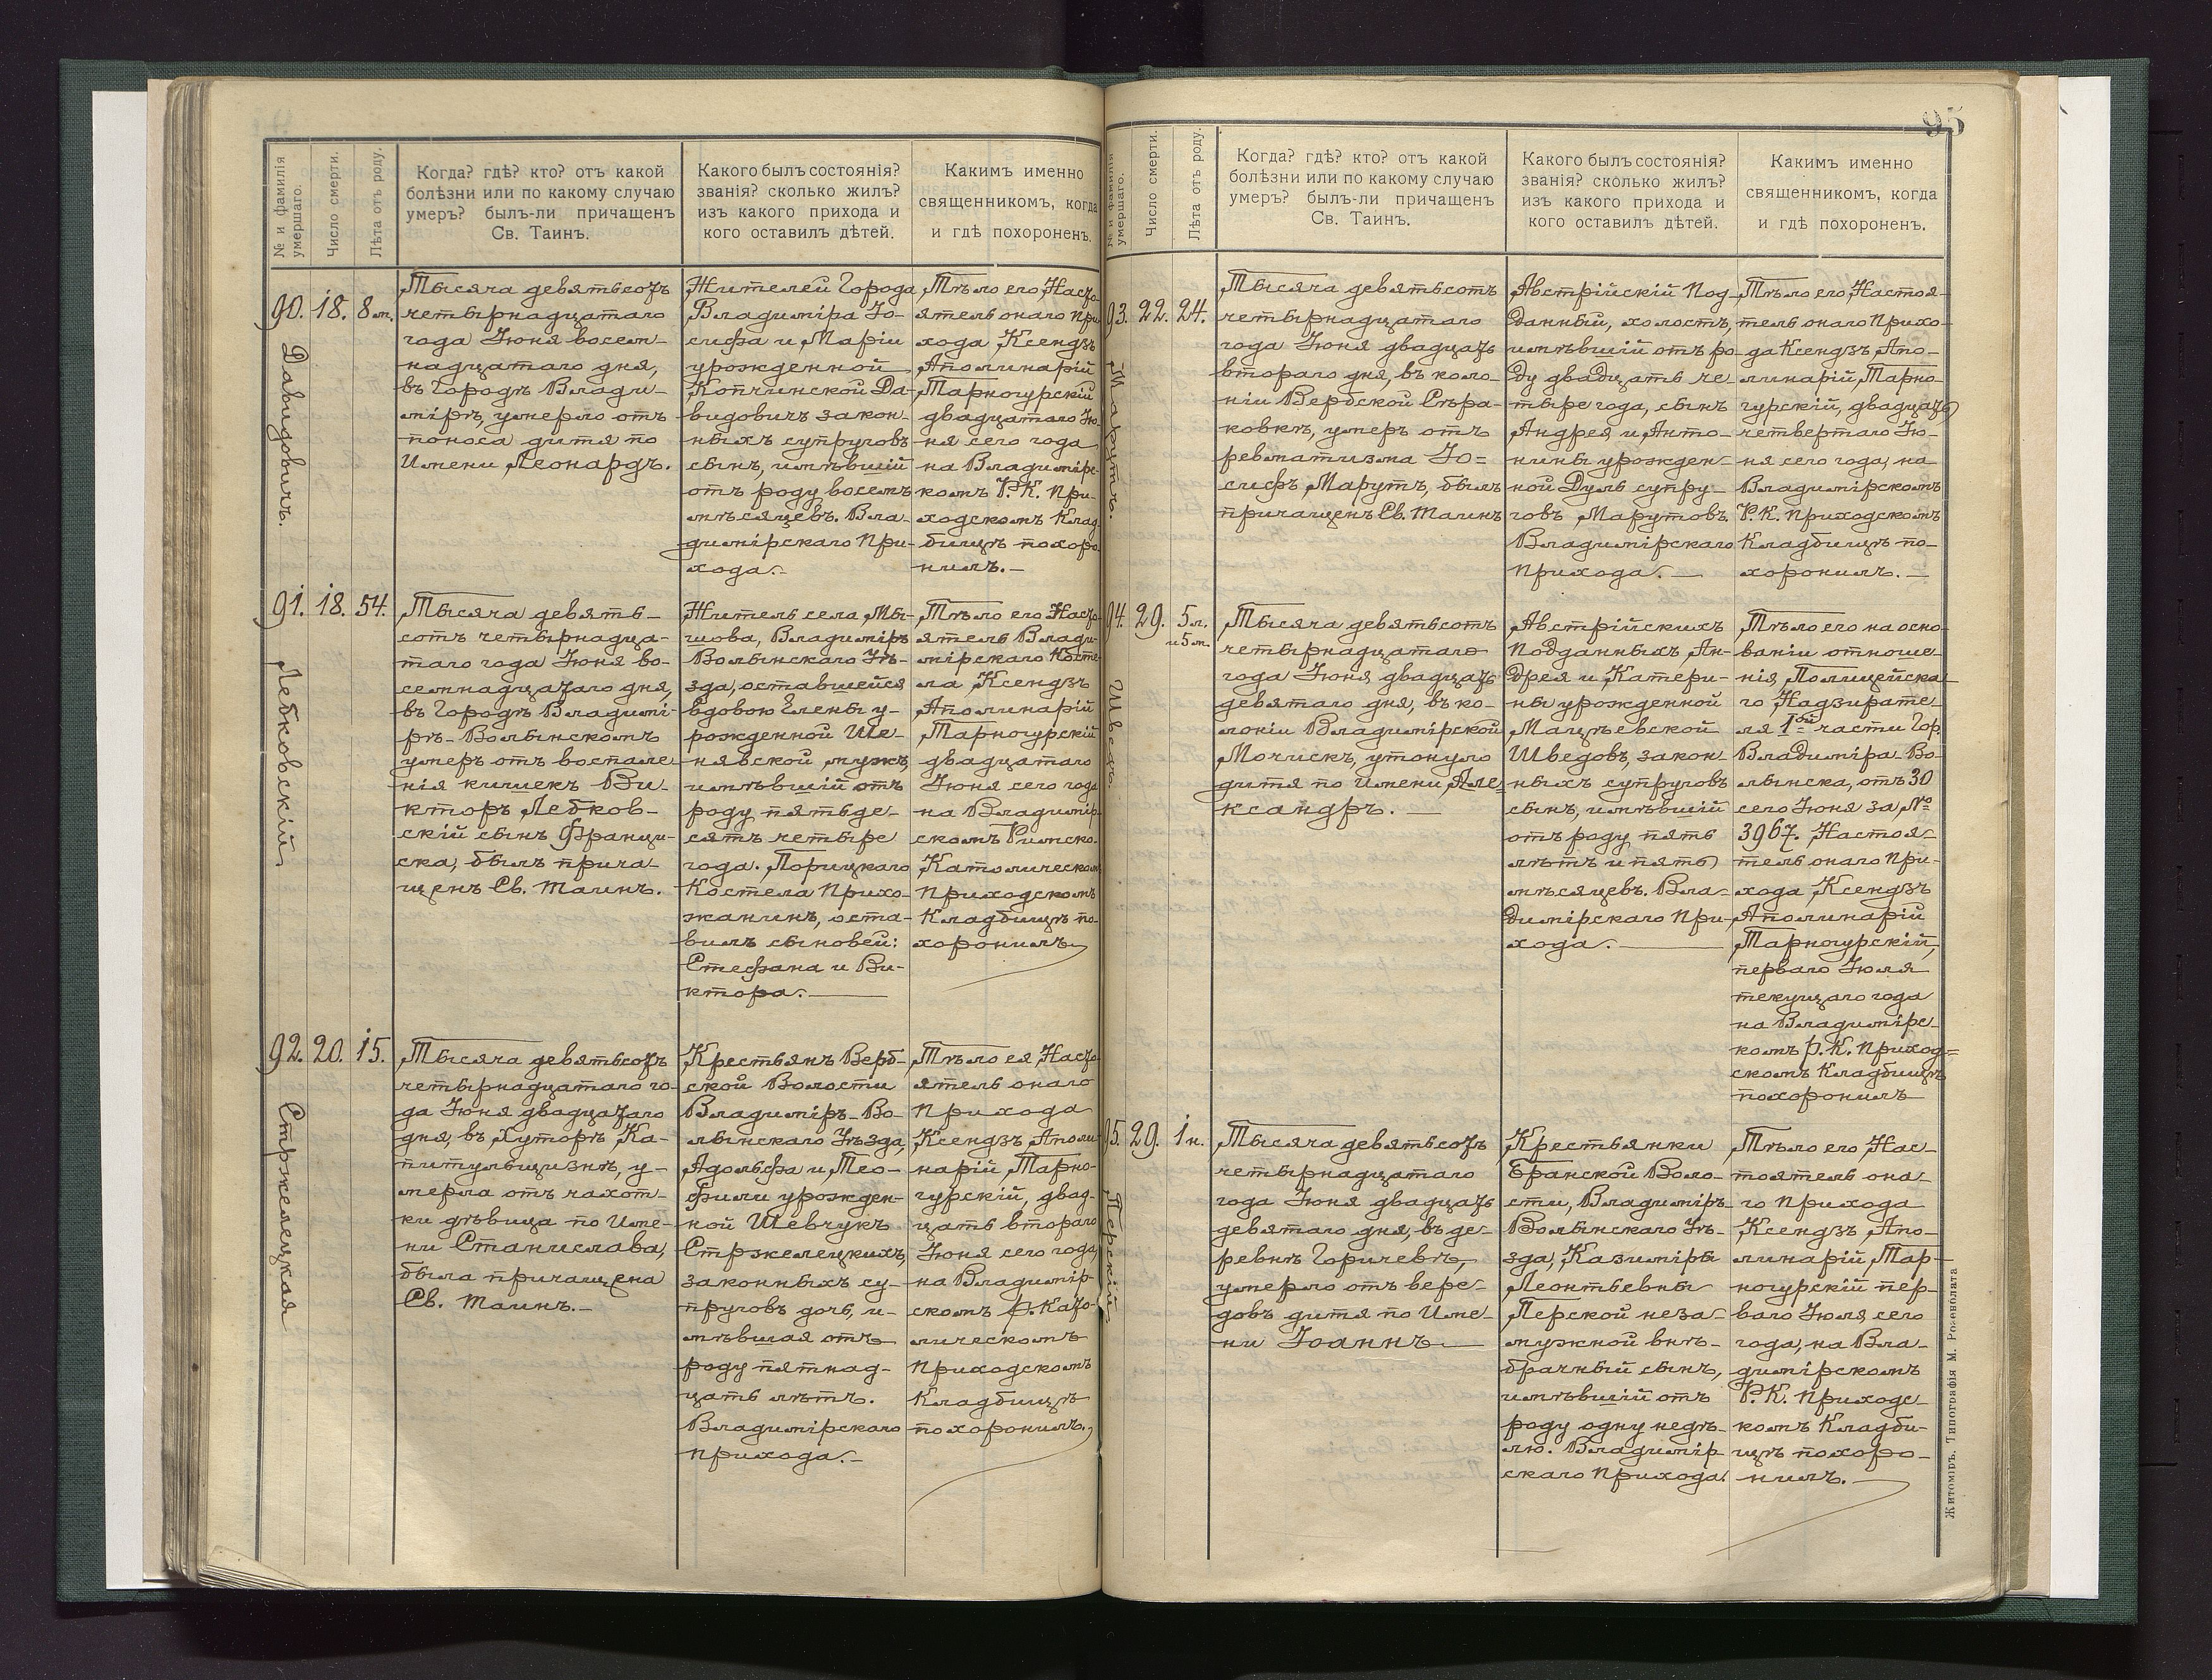 № и фамилія умершаго.
Число смерти.
Лѣта отъ роду.
Когда? гдѣ? кто? отъ какой
болѣзни или по какому случаю
умеръ? былъ-ли причащенъ
Св. Таинъ.
Какого былъ состоянія?
званія? сколько жилъ?
изъ какого прихода и
кого оставилъ дѣтей.
Каким именно
священникомъ, когда
и гдѣ похороненъ.
90. Давидовичъ.
18.
8 м.
Тысяча девятьсотъ
четырнадцатаго
года Іюня восем-
надцатаго дня,
въ Городѣ Влади-
мірѣ, умерло отъ
поноса дитя по
Имени Леонардъ.
Жителей Города
Владиміра Іо-
сифа и Маріи
урожденной
Копчинской Да-
видовичъ закон-
ныхъ супруговъ
сынъ, имѣвшій
отъ роду восемъ
мѣсяцевъ. Вла-
димірскаго При-
хода.-
Тѣло его Насто-
ятель онаго При-
хода Ксендзъ
Аполинарій
Тарногурскій
двадцатаго Ію-
ня сего года
на Владимірс-
комъ Р.К. При-
ходскомъ Клад-
бищѣ похоро-
нилъ.-
91. Лебковскій
18.
54.
Тысяча девять-
сотъ четырнадца-
таго года Іюня во-
семнадцатаго дня,
въ Городѣ Владимі-
рѣ-Волынскомъ
умеръ отъ воспале-
нія кишекъ Ви-
кторъ Лебков-
скій сынъ Франци-
ска, былъ прича-
щенъ Св. Таинъ.
Житель села Мы-
шова, Владиміръ
Волынскаго Уѣ-
зда, оставшейся
вдовою Елены у-
рожденной Ше-
нявской мужъ,
имѣвшій отъ
роду пятьде-
сятъ четыре
года. Порицкаго
Костела Прихо-
жанинъ, оста-
вилъ сыновей:
Стефана и Ви-
ктора.-
Тѣло его Насто-
ятель Влади-
мірскаго Косте-
ла Ксендзъ
Аполинарій
Тарногурскій
двадцатаго
Іюня сего года
на Владимір-
скомъ Римско-
Католическомъ
Приходскомъ
Кладбищѣ по-
хоронилъ.
92. Стржелецкая
20.
15.
Тысяча девятьсотъ
четырнадцатаго го-
да Іюня двадцатаго
дня, въ Хуторѣ Ка-
питульщизнѣ, у-
мерла отъ чахот-
ки дѣвица по Име-
ни Станислава,
была причащена
Св. Таинъ.-
Крестьянъ Верб-
ской Волости
Владиміръ-Во-
лынскаго Уѣзда,
Адольфа и Тео-
фили урожден-
ной Шевчукъ
Стржелецкихъ,
законныхъ су-
пруговъ дочь, и-
мѣвшая отъ
роду пятнад-
цать лѣтъ.
Владимірскаго
Прихода.-
Тѣло ея Насто-
ятель онаго
Прихода
Ксендзъ Аполи-
нарій Тарно-
гурскій, двад-
цать втораго
Іюня сего года,
на Владимір-
скомъ Р. Като-
лическомъ
Приходскомъ
Кладбищѣ
похоронилъ.
95
№ и фамилія умершаго.
Число смерти.
Лѣта отъ роду.
Когда? гдѣ? кто? отъ какой
болѣзни или по какому случаю
умеръ? былъ-ли причащенъ
Св. Таинъ.
Какого былъ состоянія?
званія? сколько жилъ?
изъ какого прихода и
кого оставилъ дѣтей.
Какимъ именно
священникомъ, когда
и гдѣ похороненъ.
93. Марутъ.
22.
24.
Тысяча девятьсотъ
четырнадцатаго
года Іюня двадцать
втораго дня, въ коло-
ніи Вербской Сѣра-
ковкѣ, умеръ отъ
ревматизма Іо=
сифъ Марутъ, былъ
причащенъ Св. Таинъ
Австрійскій Под-
данный, холостъ,
имѣвшій отъ ро-
ду двадцать че-
тыре года, сынъ
Андрея и Анто-
нины урожден-
ной Дуль супру-
говъ Марутовъ.
Владимірскаго
Прихода.-
Тѣло его Настоя-
тель онаго Прихо-
да Ксендзъ Апо-
линарій Тарно-
гурскій, двадцать
четвертаго Ію-
ня сего года, на
Владимірскомъ
Р.К. Приходскомъ
Кладбищѣ по-
хоронилъ.-
94. Шведъ.
29.
5 л.
и 5 м.
Тысяча девятьсотъ
четырнадцатаго
года Іюня двадцать
девятаго дня, въ ко-
лоніи Владимірской
Мочискъ, утонуло
дитя по Имени Але-
ксандръ.-
Австрійскихъ
Подданныхъ, Ан-
дрея и Катери-
ны урожденной
Мацѣевской
Шведовъ, закон-
ныхъ супруговъ
сынъ, имѣвшій
отъ роду пять
лѣтъ и пять
мѣсяцевъ. Вла-
димірскаго При-
хода.-
Тѣло его на осно-
ваніи отноше-
нія Полицейска-
го Надзирате-
ля 1ой части Гор.
Владиміра-Во-
лынска, отъ 30
сего Іюня за №
3967. Настоя-
тель онаго При-
хода Ксендзъ
Аполинарій
Тарногурскій,
перваго Іюля
текущаго года
на Владимірс-
комъ Р.К. Приход=
скомъ Кладбищѣ
похоронилъ
95. Перскій
29.
1 н.
Тысяча девятьсотъ
четырнадцатаго
года Іюня двадцать
девятаго дня, въ де-
ревнѣ Горичевѣ,
умерло отъ вере-
довъ дитя по Име-
ни Іоаннъ
Крестьянки
Бранской Воло-
сти, Владиміръ-
Волынскаго Уѣ-
зда, Казиміры
Леонтьевны
Перской неза-
мужной внѣ-
брачный сынъ,
имѣвшій отъ
роду одну недѣ-
лю. Владимір-
скаго Прихода.
Тѣло его Нас-
тоятель она-
го Прихода
Ксендзъ Апо-
линарій Тар-
ногурскій пер-
ваго Іюля сего
года, на Вла-
димірскомъ
Р.К. Приходс-
комъ Кладби-
щѣ похоро-
нилъ.-
Житоміръ. Типографія М. Розенблата